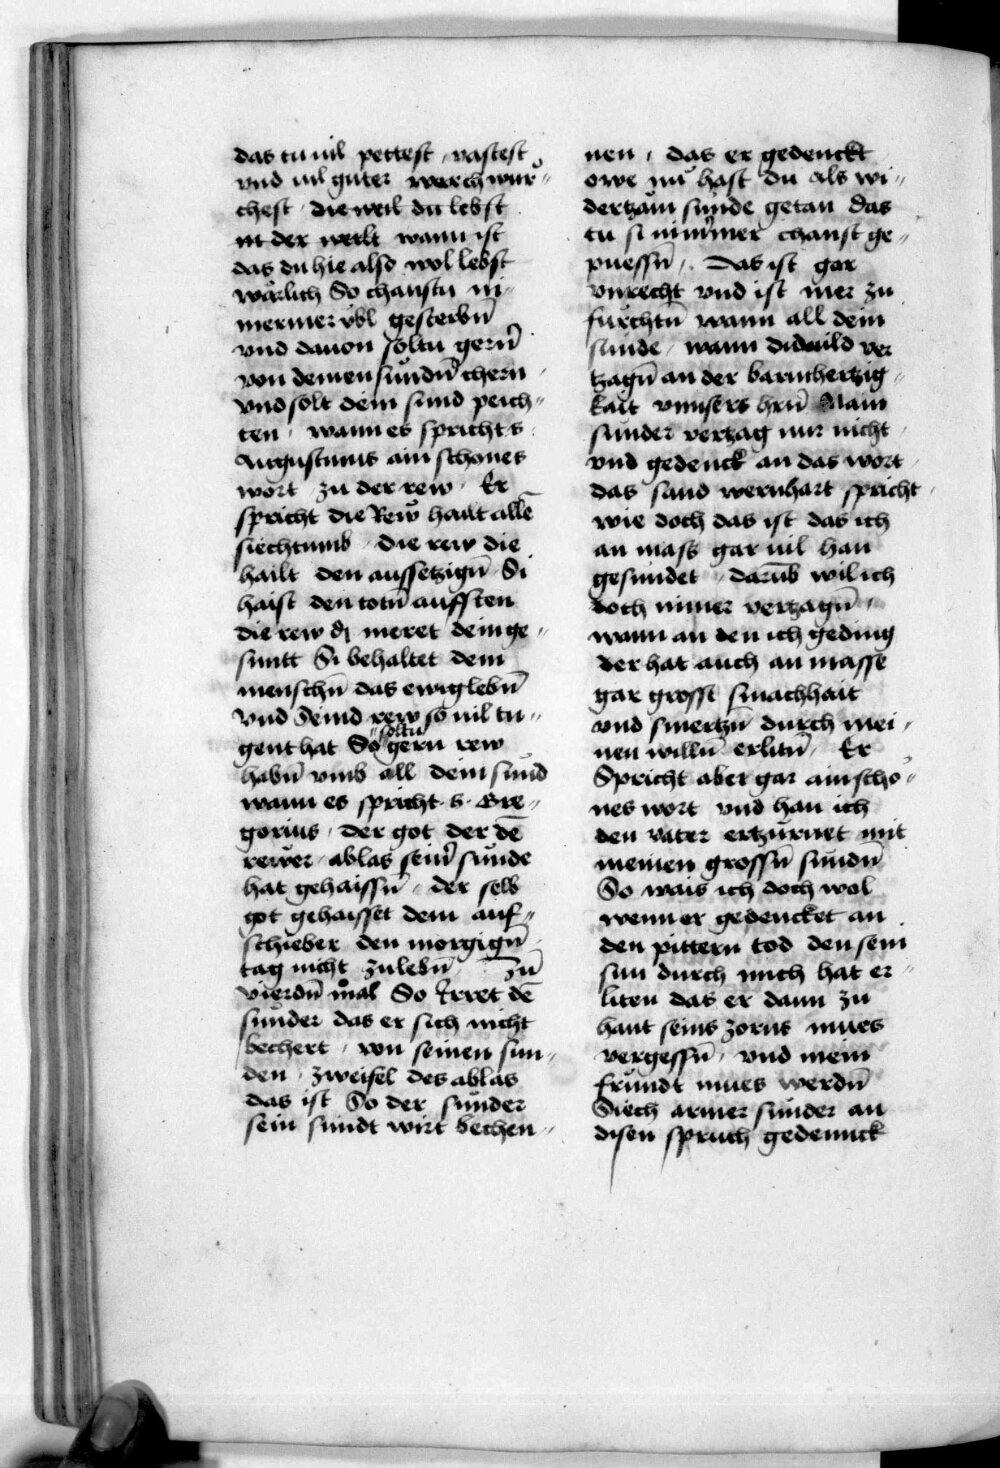 das tu uil pettest / vastest
vnd uil guter werch wur〃
chest / die weil du lebst
in der werlt wann ist
das du hie also wol lebst
wărlich So chanstu ni〃
mermer vbl gesterbn̄
vnd dauon soltu gern̄
von deinen sundn̄ chern /
vnd solt dein sund peich〃
ten / wann es spricht s
Augustinus ain schones
wort zu der rew / Er
spricht die Rew hailt allē
siechtumb / die rew die
hailt den aussetzign̄ Si
haist den totn̄ aufsten
die rew di meret dein ge〃
suntt Si behaltet dem
menschn̄ das ewig lebn̄
vnd Seind rew so uil tu〃
gent hat So soltu gern rew
habn̄ vmb all dein sund
wann es spricht s. Gre〃
gorius / der got der dē
rewer / ablas sein̄ sunde
hat gehaissn̄ / der selb
got gehaisset dem auf〃
schieber den morgign̄
tag nicht zu lebn̄ / Zū
vierdn̄ mal So Irret dē
sunder das er sich nicht
bechert / von seinen sun〃
den / zweifel des ablas
das ist So der sunder
sein sundt wirt bechen〃
nen / das er gedenckt
owe nu hast du als wi〃
dertzam sunde getan das
tu si nimmer chanst ge〃
puessn̄ / Das ist gar
vnrecht vnd ist mer zu
furchtn̄ wann all dein
sunde / wann du wild ver
tzagn̄ an der barmhertzig〃
kait vnnsers hrn̄ Nain
sunder vertzag nur nicht /
vnd gedenck an das wort /
das sand wernhart spricht /
wie doch das ist das ich
an mass gar uil han
gesundet / darūb wil ich
doch nimer vertzagn̄ /
wann an den ich geding
der hat auch an masse
gar grosse smachhait
vnd smertzn̄ durch mei〃
nen willn̄ erlitn̄ / Er
Spricht aber gar ain scho〃
nes wort vnd han ich
den vater ertzurnet mit
meinen grossn̄ sundn̄
So wais ich doch wol
wenn er gedencket an
den pittern tod den sein
sun durch mich hat er〃
liten das er dann zu
hant seins zorns mues
vergessn̄ / vnd mein
frundt mues werdn̄
Siech armer sunder an
disen spruch gedennck